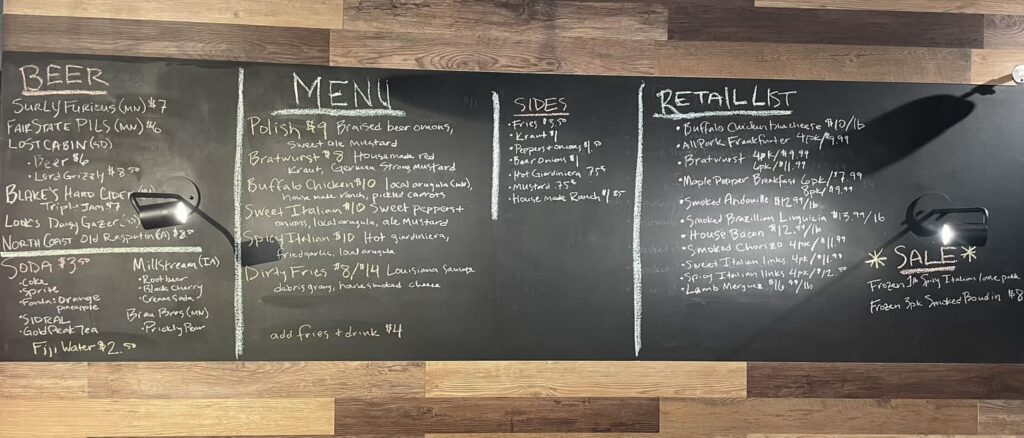 BEER
SURLY FURIOUS (MN) $7
FAIR STATE PILS (MN) $6
LOST CABIN (SD)
• Beer $6
• Lord Grizzly $8.50
BLAKE'S HARD CIDER
Triple Jam $7
Daisy Gazer
NORTH COAST Old Rasputin
SODA $3.50
• Coke
• Sprite
• Fanta: Orange
pineapple
• SIDRAL
• Gold Peak Tea
Millstream (IA)
• Root beer
• Black Cherry
• Cream Soda
Brau Bros (MN)
• Prickly Pear
Fiji Water $2.50
MENU
Polish $9 Braised beer onions,
sweet ale mustard
Bratwurst $8 House made red
Kraut, German Strong Mustard
Buffalo Chicken $10 local arugula
house made ranch, pickled carrots
Sweet Italian $10 Sweet peppers +
onions, local arugula, ale mustard
Spicy Italian $10 Hot giardiniera,
fried garlic, local arugula
Dirty Fries $8/$14 Louisiana Sausage
debris gravy, house smoked cheese
add fries + drink $4
SIDES
• Fries $3.50
• Kraut $1
• Peppers + Onions $1.50
• Beer Onions $1
• Hot Giardiniera .75¢
• Mustard .75¢
• House made Ranch
RETAIL LIST
• Buffalo Chicken bleu cheese $10/lb
• All Pork Frankfurter 4pk/$9.99
• Bratwurst 4pk/$9.99
6pk/$11.99
• Maple Pepper Breakfast 6pk/$7.99
8pk/$9.99
• Smoked Andouille $12.99/lb
• Smoked Brazilian Linguicia $13.99/lb
• House Bacon $12.99/lb
• Smoked Chorizo 4pk/$11.99
• Sweet Italian links 4pk/$11.99
• Spicy Italian links 4pk/$12.50
• Lamb Merguez $16.99/lb
* SALE *
Frozen 1lb Spicy Italian loose pork
Frozen 3pk Smoked Boudin $8